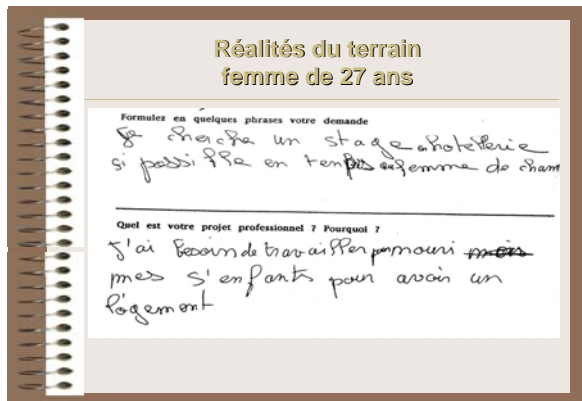 Réalités du terrain
femme de 27 ans
Formulez en quelques phrases votre demande
Je cherche un stage en hotellerie
si possible en temps en femme de cham
Quel est votre projet professionnel ? Pourquoi ?
J'ai besoin de travailler pour nouri mois
mes s'enfants pour avoir un
logement